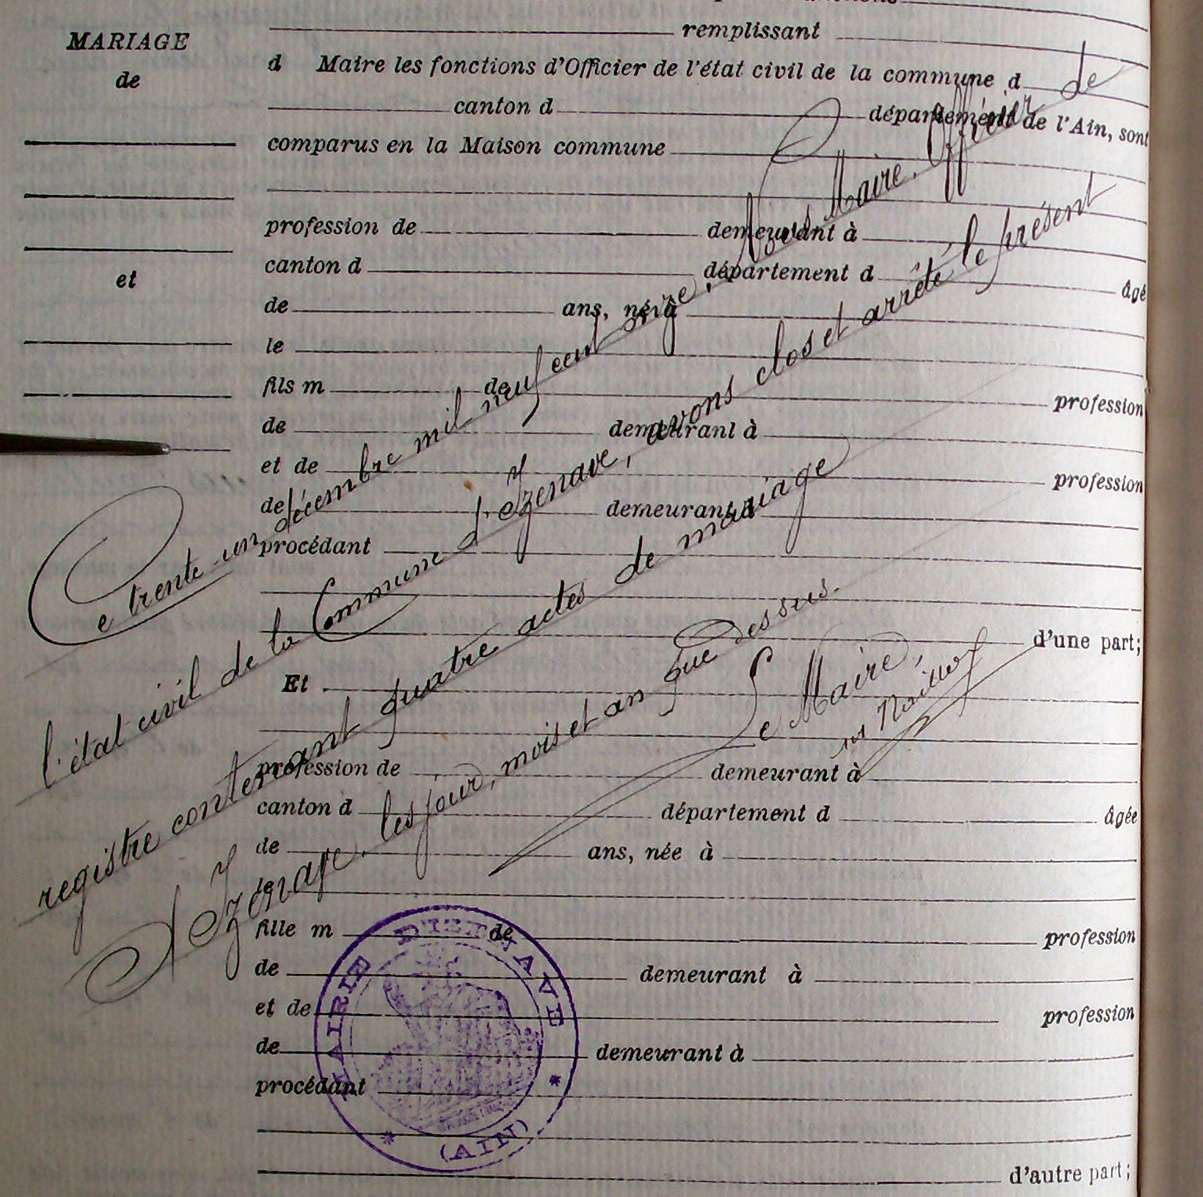 MARIAGE
de
et
remplissant
d Maire les fonctions d'Officier de l'état civil de la commune d
canton d département de l'Ain, sont
comparus en la Maison commune
profession de demeurant à
canton d département d âgé
de ans, né à
le
fils m de profession
de demeurant à
et de profession
de demeurant à
procédant
d'une part;
Et
profession de demeurant à
canton d département d âgée
de ans, née à
le
fille m de profession
de demeurant à
et de profession
de demeurant à
procédant
d'autre part;
Ce trente-un décembre mil neuf cent onze, Nous Maire, Officier de
l'état civil de la Commune d'Izenave, avons clos et arrêté le présent
registre contenant quatre actes de mariage
A Izenave, les jour, mois et an que dessus.
Le Maire,
MAIRIE D'IZENAVE
(AIN)